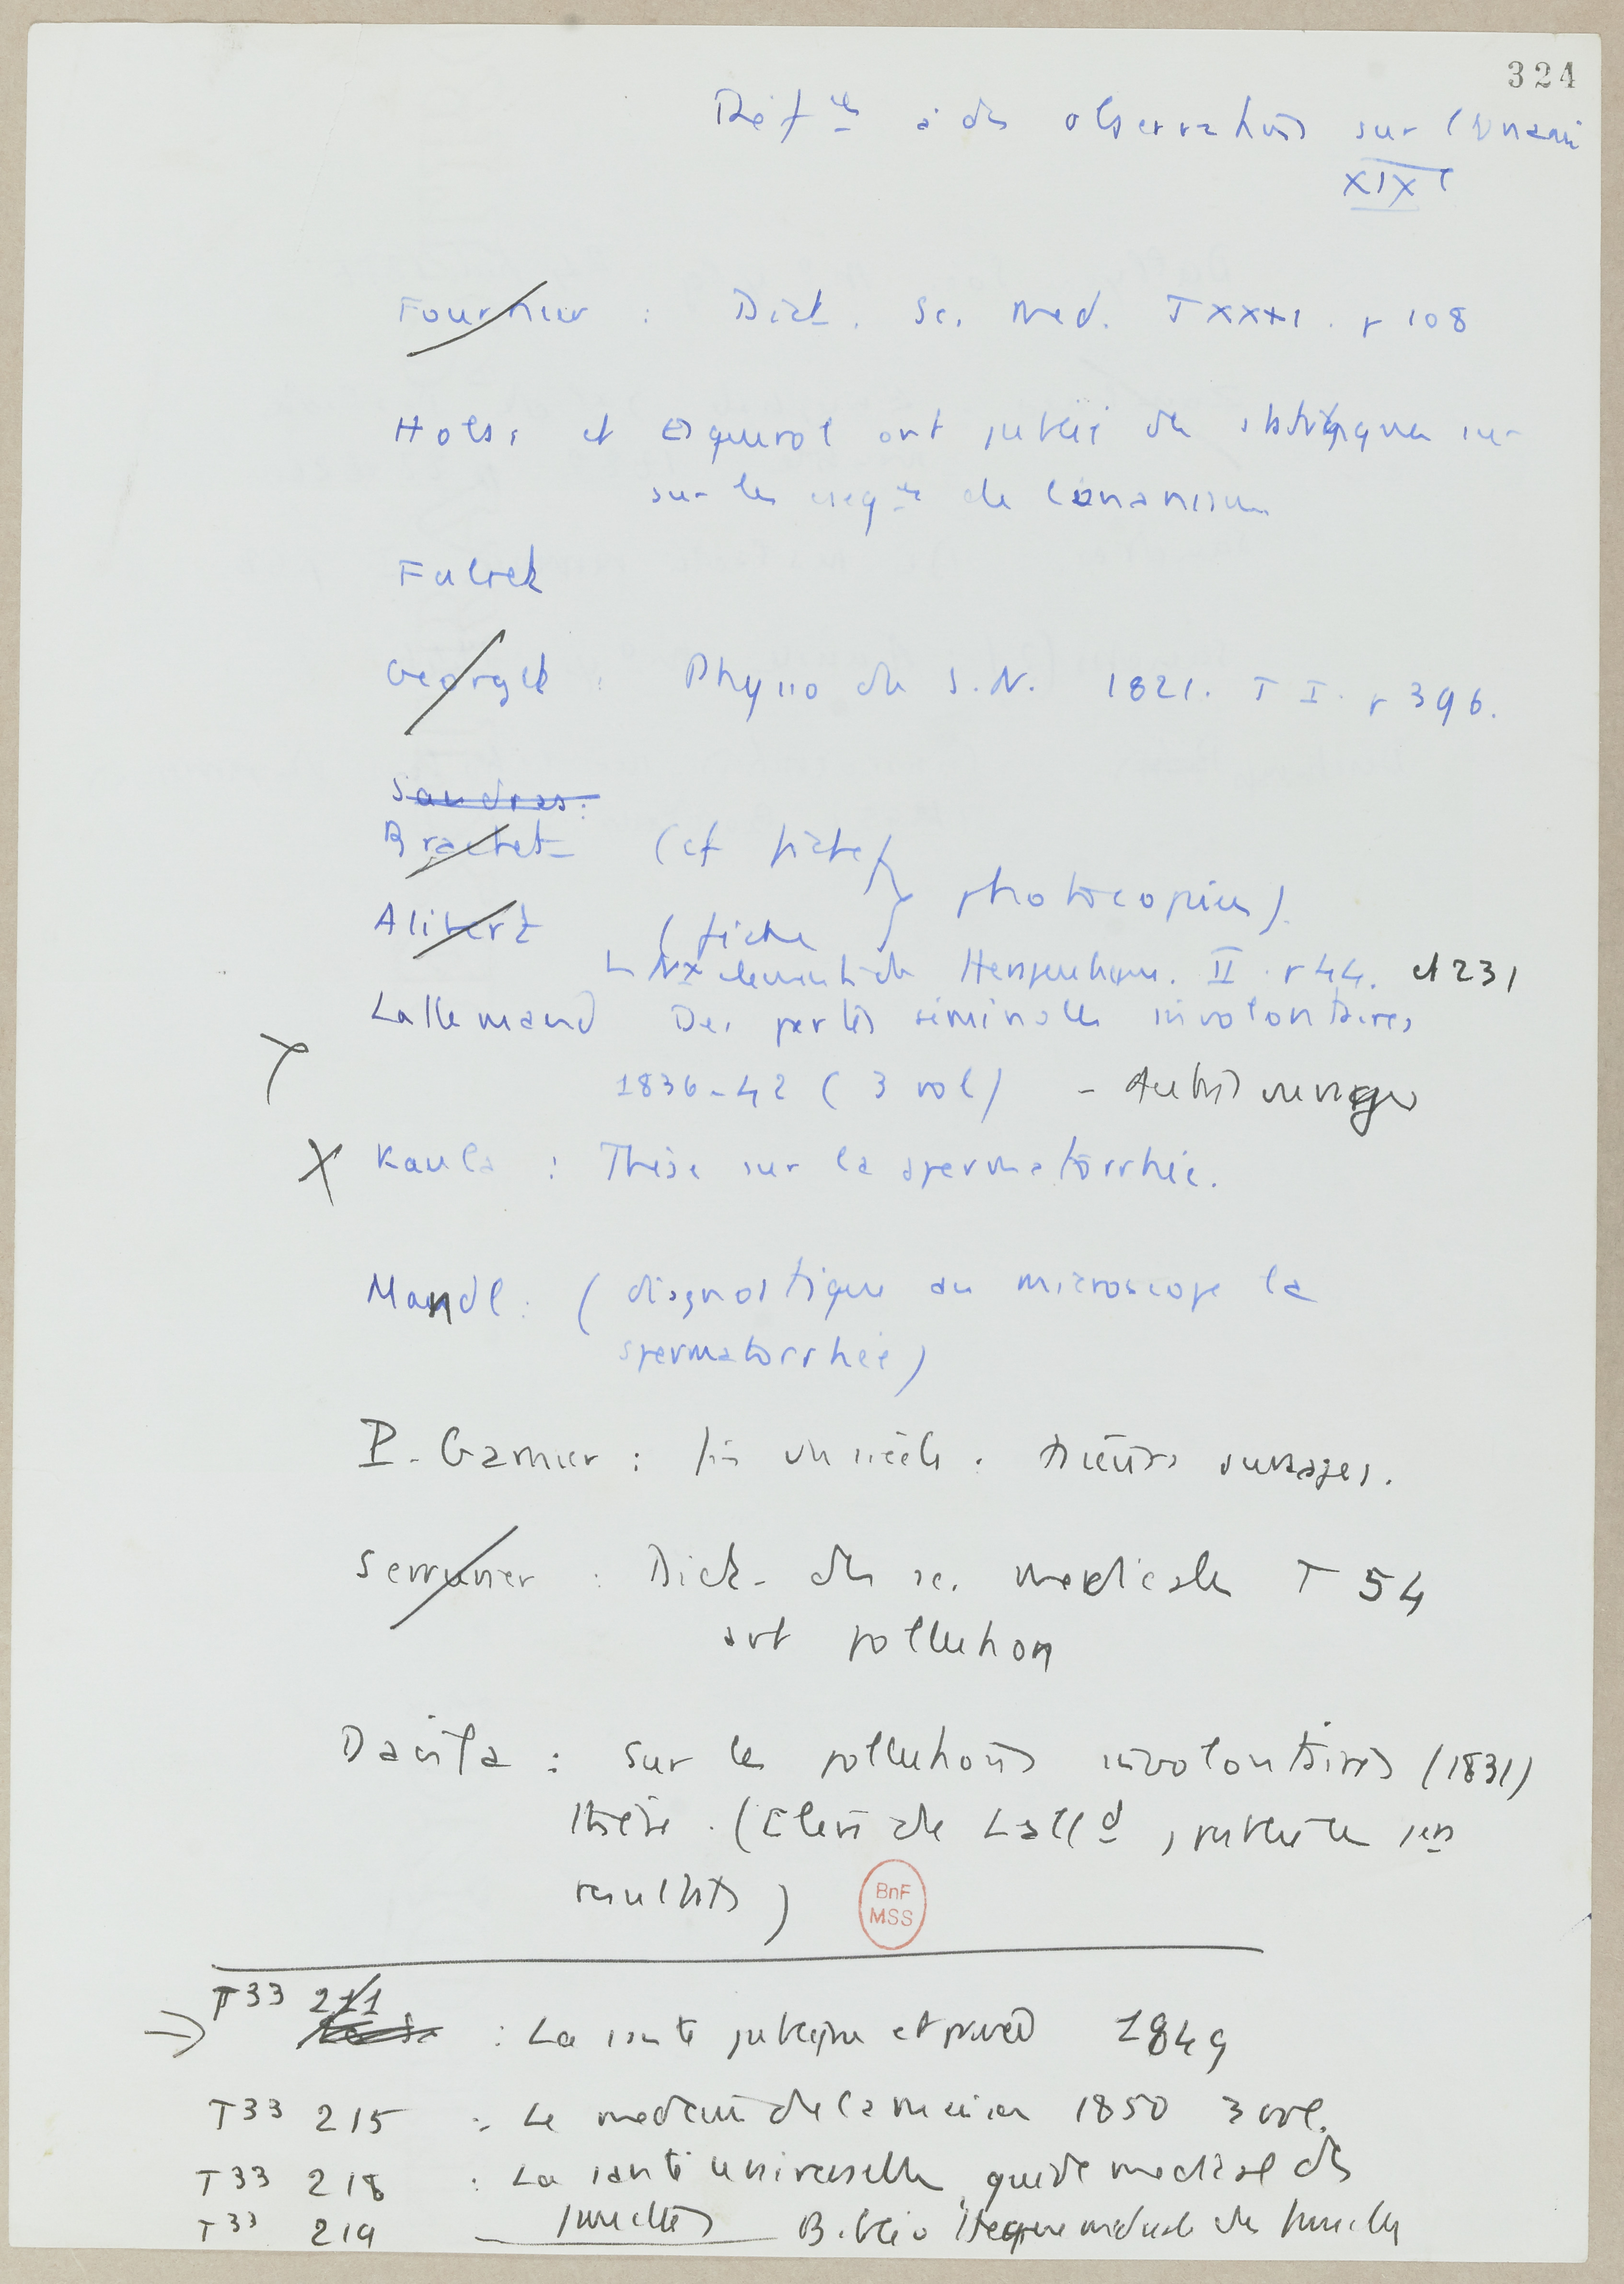 324
Réf ces à des observations sur l'Onani
XIXe
Fournier : Dict. Sc. Med. T XXXI. p 108
et Esquirol ont publié des statistiques sur
sur les cseq ces de l'onanisme
Falret
Georget : Physio du S. N. 1821. T I. p 396.
Sandras :
Brachet (cf fiche
photocopies)
Alibert (fiche
L Nx elements de Therapeutique. II. p 44. et 231
Lallemand Des pertes séminales involontaires
1836-42 (3 vol) - Autres ouvrages
X Kaula : Thèse sur la spermatorrhée.
Mandl : (diagnostique au microscope la
spermatorrhée)
P. Garnier : fin du siècle. ouvrages.
Serrurier : Dict. des sc. medicales T 54
art pollution
Davila : Sur les pollutions involontaires (1831)
thèse. (Elève de Lall d, publie ses
resultats)
BnF
MSS
T33 211
: La santé publique et privée 1849
T33 215 : Le medecin de la maison 1850 3 vol.
T33 218 : La santé universelle, guide medical des
familles
T33 219 Bibliotheque medicale des familles